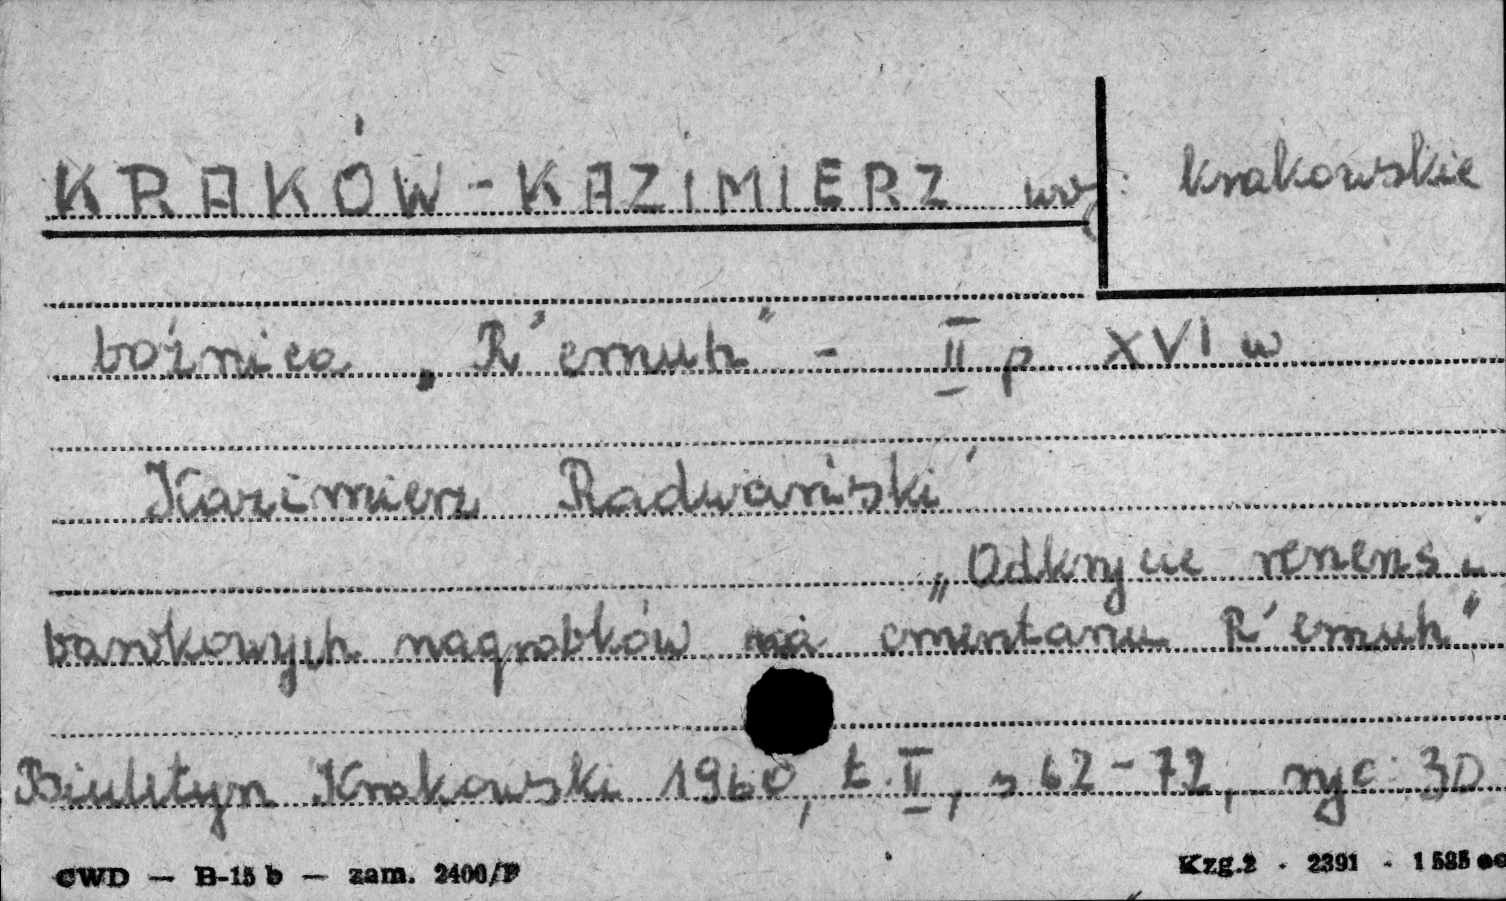 KRAKÓW-KAZIMIERZ woj: krakowskie
bożnica „R'emuh" - II p XVI w
Kazimierz Radwański
„Odkrycie renens.
bankowych nagrobków na cmentarzu R'emuh"
Biuletyn Krakowski 1960, t. II, s 62-72, ryc. 30
CWD — B-15 b — zam. 2400/F
Kzg.2 - 2391 - 1 585